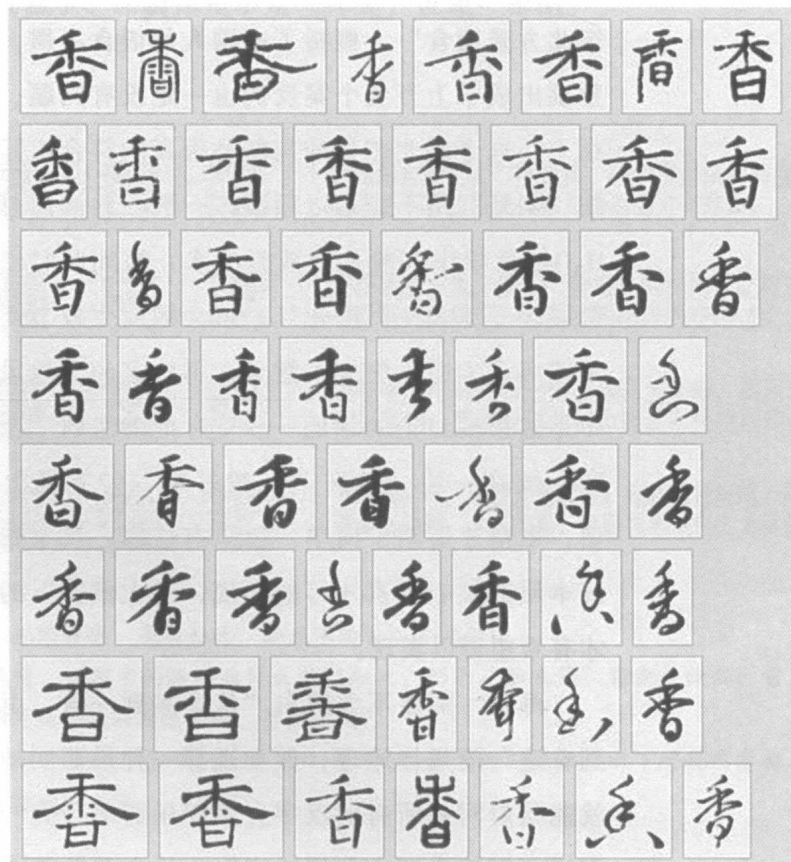 香香香香香香香香
香香香香香香香香
香香香香香香香香
香香香香香香香香
香香香香香香香
香香香香香香香香
香香香香香香香
香香香香香香香